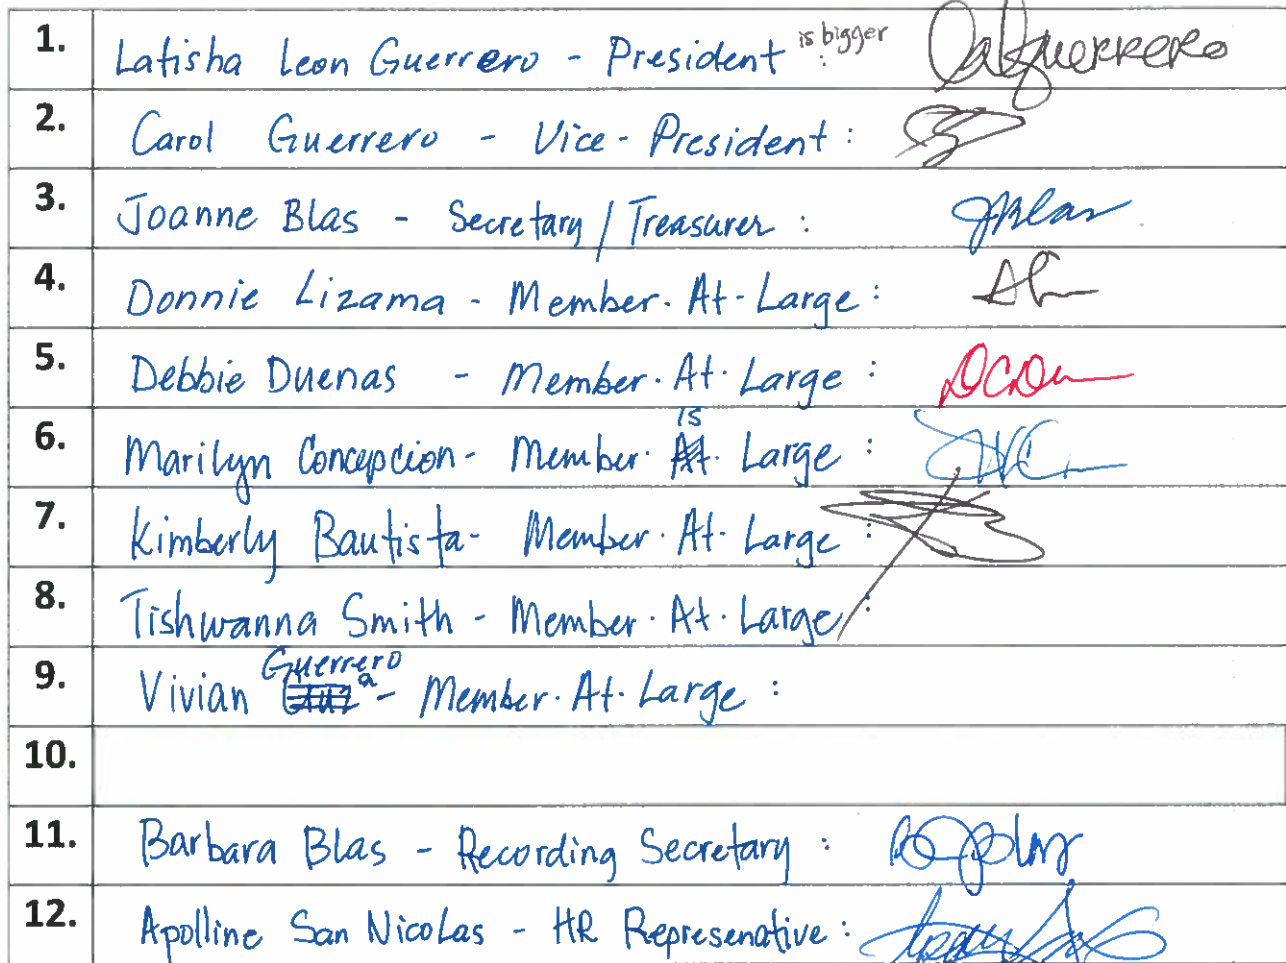 1. Latisha Leon Guerrero - President is bigger : LalGuerrero
2. Carol Guerrero - Vice-President :
3. Joanne Blas - Secretary / Treasurer : JBlas
4. Donnie Lizama - Member-At-Large :
5. Debbie Duenas - Member-At-Large :
6. Marilyn Concepcion - Member- is Large :
7. Kimberly Bautista - Member-At-Large :
8. Tishwanna Smith - Member-At-Large :
9. Vivian Guerrero a - Member-At-Large :
10.
11. Barbara Blas - Recording Secretary :
12. Apolline San Nicolas - HR Represenative :